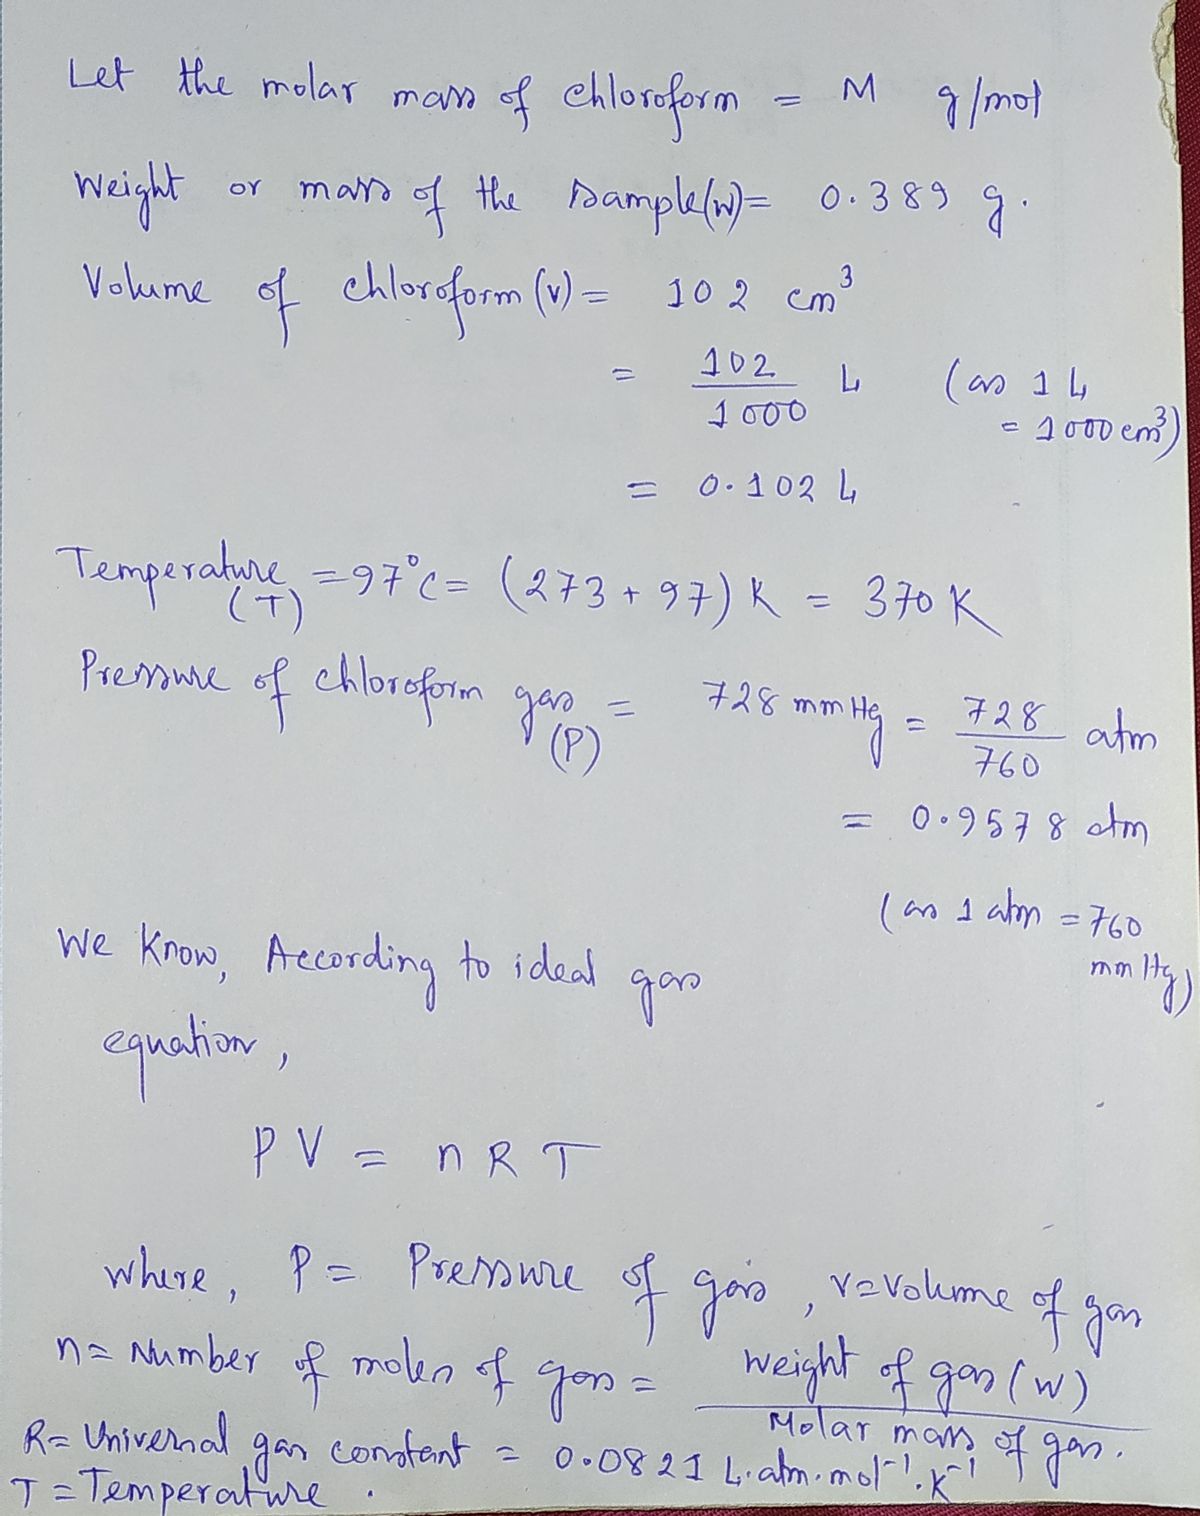 Let the molar mass of chloroform = M g/mol
Weight or mass of the sample(w)= 0.389 g.
Volume of chloroform (v) = 102 cm³
= 102/1000 L (as 1 L
= 1000 cm³)
= 0.102 L
Temperature (T) = 97°C = (273 + 97) K = 370 K
Pressure of chloroform gas (P) = 728 mmHg = 728/760 atm
= 0.9578 atm
(as 1 atm = 760
mm Hg)
We Know, According to ideal gas
equation,
PV = nRT
where, P = Pressure of gas, v=volume of gas
n= Number of moles of gas = Weight of gas (w)/Molar mass of gas.
R= Universal gas constant = 0.0821 L.atm.mol⁻¹.K⁻¹
T = Temperature.